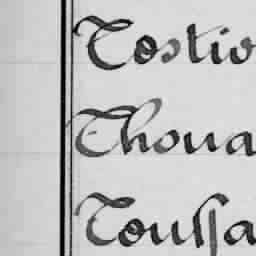 Tostiv
Thoua
Toussa